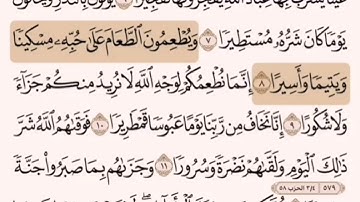 عَيۡنٗا يَشۡرَبُ بِهَا عِبَادُ ٱللَّهِ يُفَجِّرُونَهَا تَفۡجِيرٗا ٦ يُوفُونَ بِٱلنَّذۡرِ وَيَخَافُونَ
يَوۡمٗا كَانَ شَرُّهُۥ مُسۡتَطِيرٗا ٧ وَيُطۡعِمُونَ ٱلطَّعَامَ عَلَىٰ حُبِّهِۦ مِسۡكِينٗا
وَيَتِيمٗا وَأَسِيرًا ٨ إِنَّمَا نُطۡعِمُكُمۡ لِوَجۡهِ ٱللَّهِ لَا نُرِيدُ مِنكُمۡ جَزَآءٗ
وَلَا شُكُورًا ٩ إِنَّا نَخَافُ مِن رَّبِّنَا يَوۡمًا عَبُوسٗا قَمۡطَرِيرٗا ١٠ فَوَقَىٰهُمُ ٱللَّهُ شَرَّ
ذَٰلِكَ ٱلۡيَوۡمِ وَلَقَّىٰهُمۡ نَضۡرَةٗ وَسُرُورٗا ١١ وَجَزَىٰهُم بِمَا صَبَرُواْ جَنَّةٗ
٥٧٩ ٣/٤ الحزب ٥٨